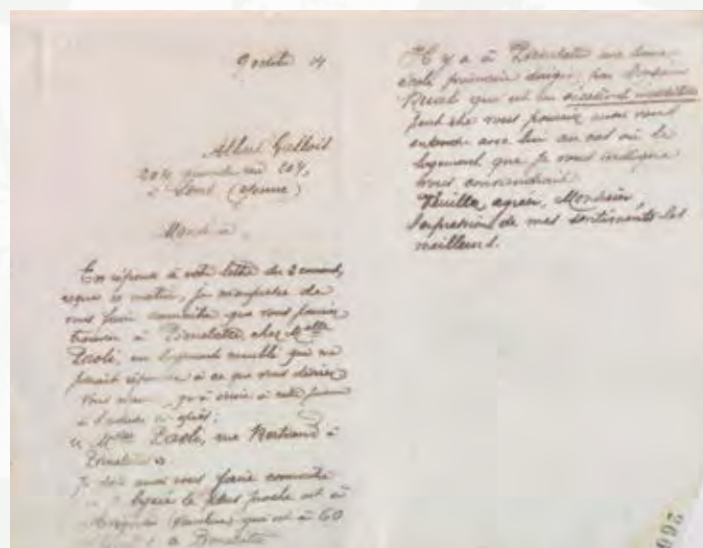 9 octobre 14
Albert Gallois
204 grande rue 204,
à Sens (Yonne)
Monsieur,
En réponse à votre lettre du 2 courant,
reçue ce matin, je m'empresse de
vous faire connaître que vous pouvez
trouver à chez Mme
Paoli, un logement meublé qui me
paraît répondre à ce que vous désirez
Vous n'avez qu'à écrire à cette
à l'adresse ci-après:
Mme Paoli, rue Bertrand à
Je dois aussi vous faire connaître
lycée le plus proche est à
Avignon (Vaucluse) qui est à 60
à
Il y a à une bonne
école primaire dirigée par Monsieur
qui est un
Peut-être vous pourriez aussi vous
entendre avec lui au cas où le
logement que je vous indique
vous conviendrait.
Veuillez agréer, Monsieur,
l'expression de mes sentiments les
meilleurs.